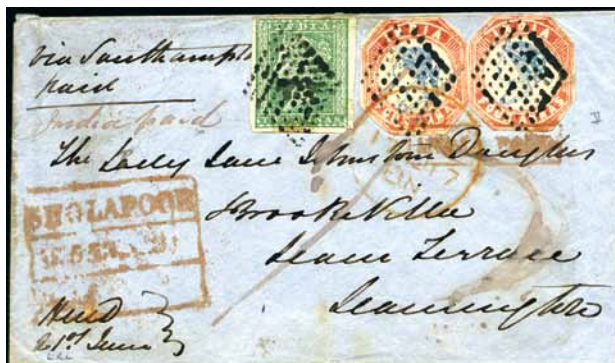 via Southampton
paid
India paid
INDIA
INDIA
INDIA
The Lady Jane Johnstone Douglas
Brooke Villa
Leam Terrace
Leamington
SHOLAPOOR
21st June